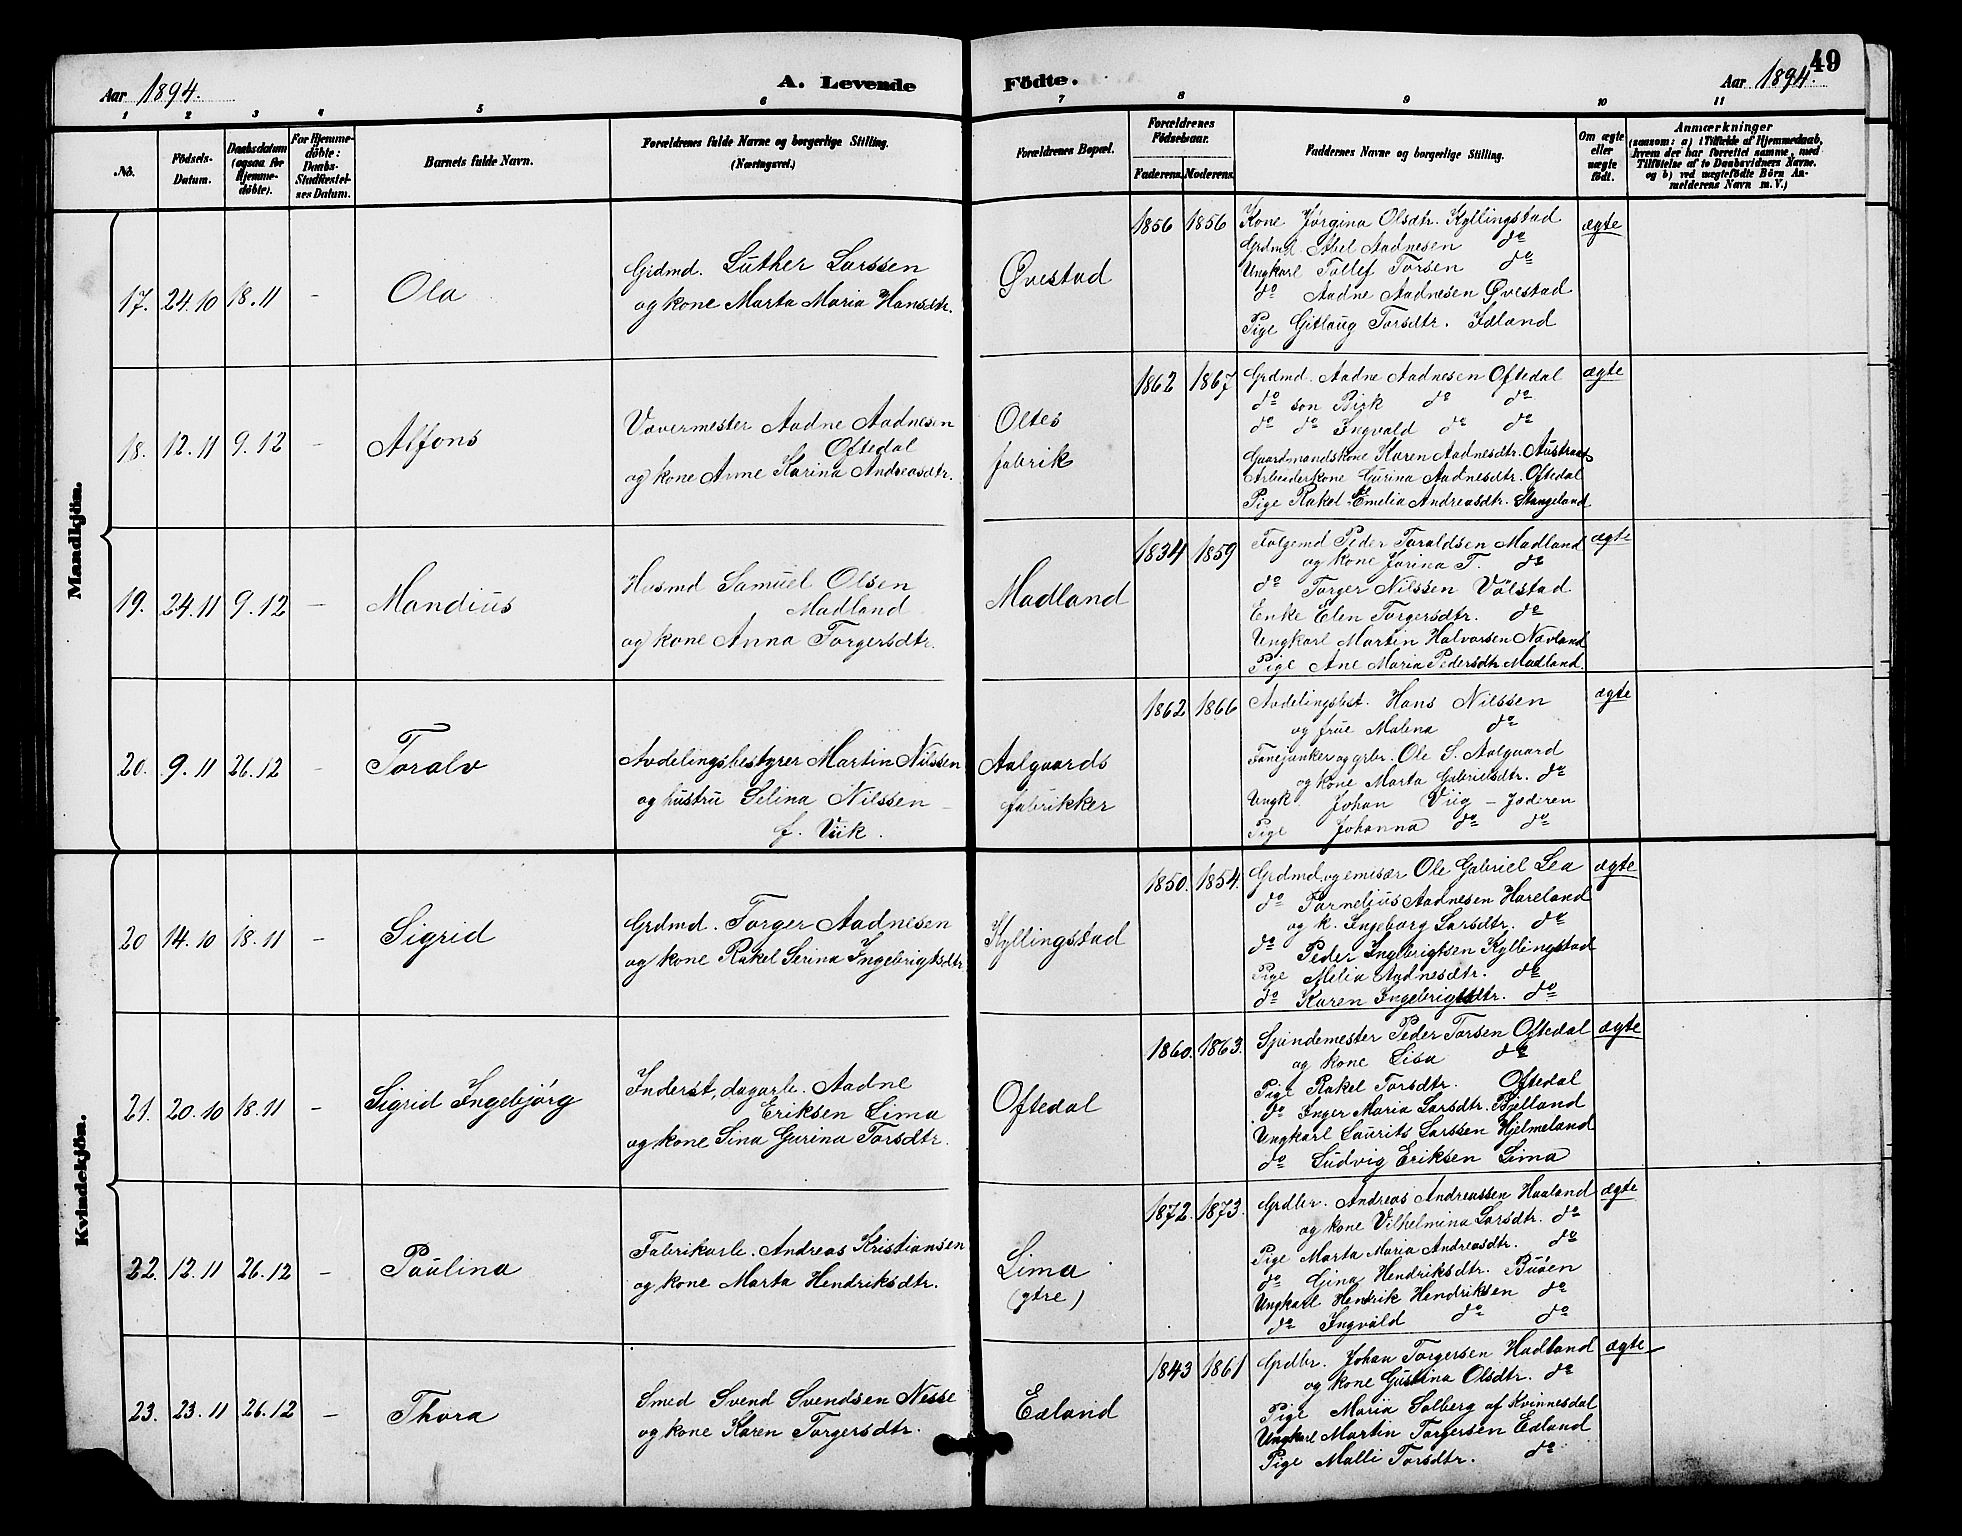 49
Aar 1894.
A. Levende Födte.
Aar 1894.
1 2 3 4 5 6 7 8 9 10 11
No.
Födsels-Datum.
Daabsdatum (ogsaa for Hjemme-döbte).
For Hjemme-döbte: Daabs Stadfæstel-ses Datum.
Barnets fulde Navn.
Forældrenes fulde Navne og borgerlige Stilling.
(Næringsvei.)
Forældrenes Bopæl.
Forældrenes Födselsaar.
Faderens. Moderens.
Faddernes Navne og borgerlige Stilling.
Om ægte eller uægte födt.
Anmærkninger
(saasom: a) i Tilfælde af Hjemmedaab, hvem der har forrettet samme, med Tilföielse af to Daabsvidners Navne. og b) ved uægtefödte Börn An-melderens Navn m. V.)
Mandkjön.
17. 24.10 18.11 - Ola
Grdmd. Luther Larssen
og kone Marta Maria Hansdtr.
Øvestad
1856 1856
Kone Jørgina Olsdtr. Kyllingstad
Grdmd. Abel Aadnesen do
Ungkarl Tollef Torsen do
do Aadne Aadnesen Øvestad
Pige Gitlaug Torsdtr. Idland
ægte
18. 12.11 9.12 - Alfons
Vævermester Aadne Aadnesen
Oftedal
og kone Anne Karina Andreasdtr.
Oltes
fabrik
1862 1867
Grdmd. Aadne Aadnesen Oftedal
do son Birk do do
do do Ingvald do do
Gaardmandskone Karen Aadnesdtr. Austraat
Arbeiderkone Gurina Aadnesdtr. Oftedal
Pige Rakel Emelia Andreasdtr. Stangeland
ægte
19. 24.11 9.12 - Mandius
Husmd Samuel Olsen
Madland
og kone Anna Torgersdtr.
Madland
1834 1859
Følgemd Peder Toraldsen Madland
og kone Jorina T. do
do Torger Nilssen Vølstad
Enke Elen Torgersdtr. do
Ungkarl Martin Halvorsen Nævland
Pige Ane Maria Pedersdtr Madland.
ægte
20. 9.11 26.12 - Toralv
Avdelingsbestyrer Martin Nilssen
og hustru Selina Nilssen -
f. Viik.
Aalgaards
fabrikker
1862 1866
Avdelingsbst. Hans Nilssen
og frue Malena do
Fanejunker og grbr. Ole S. Aalgaard
og kone Marta Gabrielsdtr. do
Ungk Johan Viig - Jæderen
Pige Johanna do do
ægte
Kvindekjön.
20 14.10 18.11 - Sigrid
Grdmd. Torger Aadnesen
og kone Rakel Serina Ingebrigtsdtr
Kyllingstad
1850. 1854.
Grdmd. og emisær Ole Gabriel Lea
do Tornelius Aadnesen Hareland
og k. Ingeborg Larsdtr. do
do Peder Ingebrigtsen Kyllingstad
Pige Melia Aadnesdtr. do
do Karen Ingebrigtsdtr. do
ægte
21. 20.10 18.11 - Sigrid Ingebjørg
Inderst, dagarb. Aadne
Eriksen Lima
og kone Sina Gurina Torsdtr.
Oftedal
1860. 1863.
Spindemester Peder Torsen Oftedal
og kone Lisa do
Pige Rakel Torsdtr. Oftedal
do Inger Maria Larsdtr. Bjelland
Ungkarl Laurits Larssen Hjelmeland
do Ludvig Eriksen Lima
ægte
22. 12.11 26.12 - Paulina
Fabrikarb. Andreas Kristiansen
og kone Marta Hendriksdtr.
Lima
(ytre)
1872. 1873.
Grdbr. Andreas Andreassen Haaland
og kone Vilhelmina Larsdtr. do
Pige Marta Maria Andreasdtr. do
do Gina Hendriksdtr. Buøen
Ungkarl Hendrik Hendriksen do
do Ingvald do do
ægte
23. 23.11 26.12 - Thora
Smed Svend Svendsen Nesse
og kone Karen Torgersdtr.
Edland
1843 1861
Grdbr. Johan Torgersen Hadland
og kone Gustina Olsdtr. do
Pige Maria Solberg af Kvinnesdal
Ungkarl Martin Torgersen Edland
Pige Malli Torsdtr. do
ægte